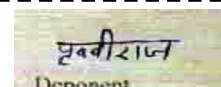 पृथ्वीराज
Deponent